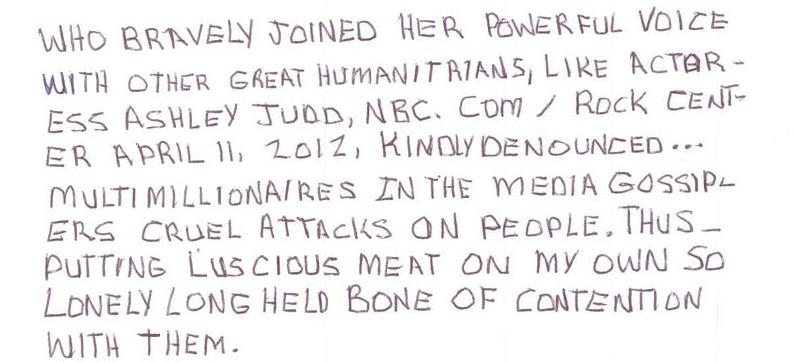 WHO BRAVELY JOINED HER POWERFUL VOICE
WITH OTHER GREAT HUMANITRIANS, LIKE ACTOR-
ESS ASHLEY JUDD, NBC. COM / ROCK CENT-
ER APRIL 11, 2012, KINDLY DENOUNCED...
MULTIMILLIONAIRES IN THE MEDIA GOSSIPL-
ERS CRUEL ATTACKS ON PEOPLE. THUS_
PUTTING LUSCIOUS MEAT ON MY OWN SO
LONELY LONG HELD BONE OF CONTENTION
WITH THEM.